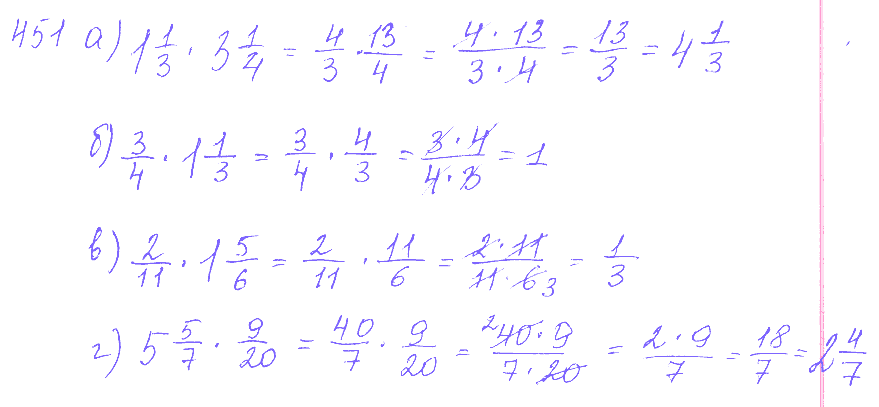 451 а) 1 1/3 · 3 1/4 = 4/3 · 13/4 = 4 · 13 / 3 · 4 = 13/3 = 4 1/3
б) 3/4 · 1 1/3 = 3/4 · 4/3 = 3 · 4 / 4 · 3 = 1
в) 2/11 · 1 5/6 = 2/11 · 11/6 = 2 · 11 / 11 · 6 3 = 1/3
г) 5 5/7 · 9/20 = 40/7 · 9/20 = 2 40 · 9 / 7 · 20 = 2 · 9 / 7 = 18/7 = 2 4/7